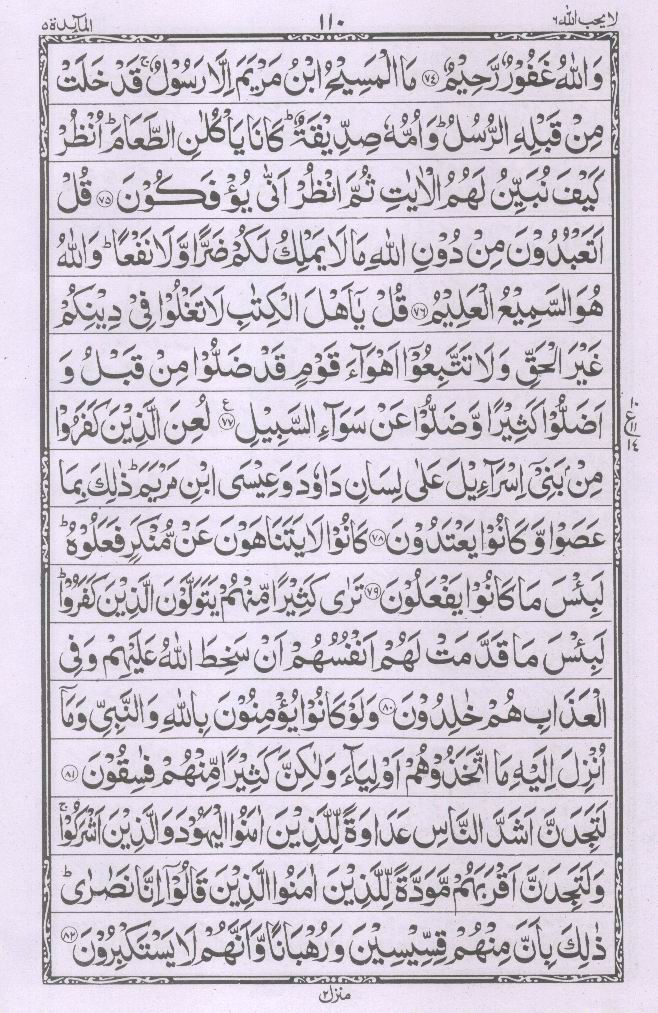 لا يحب الله ٦ ١١٠ المآئدة ٥
وَاللّٰهُ غَفُوْرٌ رَّحِيْمٌ ﴿۷۴﴾ مَا الْمَسِيْحُ ابْنُ مَرْيَمَ اِلَّا رَسُوْلٌ ۚ قَدْ خَلَتْ
مِنْ قَبْلِهِ الرُّسُلُ ؕ وَاُمُّهٗ صِدِّيْقَةٌ ؕ كَانَا يَاْكُلٰنِ الطَّعَامَ ؕ اُنْظُرْ
كَيْفَ نُبَيِّنُ لَهُمُ الْاٰيٰتِ ثُمَّ انْظُرْ اَنّٰى يُؤْفَكُوْنَ ﴿۷۵﴾ قُلْ
اَتَعْبُدُوْنَ مِنْ دُوْنِ اللّٰهِ مَا لَا يَمْلِكُ لَكُمْ ضَرًّا وَّلَا نَفْعًا ؕ وَاللّٰهُ
هُوَ السَّمِيْعُ الْعَلِيْمُ ﴿۷۶﴾ قُلْ يٰۤاَهْلَ الْكِتٰبِ لَا تَغْلُوْا فِىْ دِيْنِكُمْ
غَيْرَ الْحَقِّ وَلَا تَتَّبِعُوْۤا اَهْوَآءَ قَوْمٍ قَدْ ضَلُّوْا مِنْ قَبْلُ وَ
اَضَلُّوْا كَثِيْرًا وَّضَلُّوْا عَنْ سَوَآءِ السَّبِيْلِ ﴿۷۷﴾ ع لُعِنَ الَّذِيْنَ كَفَرُوْا
مِنْۢ بَنِىْۤ اِسْرَآءِيْلَ عَلٰى لِسَانِ دَاوٗدَ وَعِيْسَى ابْنِ مَرْيَمَ ؕ ذٰلِكَ بِمَا
عَصَوْا وَّكَانُوْا يَعْتَدُوْنَ ﴿۷۸﴾ كَانُوْا لَا يَتَنَاهَوْنَ عَنْ مُّنْكَرٍ فَعَلُوْهُ ؕ
لَبِئْسَ مَا كَانُوْا يَفْعَلُوْنَ ﴿۷۹﴾ تَرٰى كَثِيْرًا مِّنْهُمْ يَتَوَلَّوْنَ الَّذِيْنَ كَفَرُوْا ؕ
لَبِئْسَ مَا قَدَّمَتْ لَهُمْ اَنْفُسُهُمْ اَنْ سَخِطَ اللّٰهُ عَلَيْهِمْ وَفِى
الْعَذَابِ هُمْ خٰلِدُوْنَ ﴿۸۰﴾ وَلَوْ كَانُوْا يُؤْمِنُوْنَ بِاللّٰهِ وَالنَّبِىِّ وَمَاۤ
اُنْزِلَ اِلَيْهِ مَا اتَّخَذُوْهُمْ اَوْلِيَآءَ وَلٰكِنَّ كَثِيْرًا مِّنْهُمْ فٰسِقُوْنَ ﴿۸۱﴾
لَتَجِدَنَّ اَشَدَّ النَّاسِ عَدَاوَةً لِّلَّذِيْنَ اٰمَنُوا الْيَهُوْدَ وَالَّذِيْنَ اَشْرَكُوْا ۚ
وَلَتَجِدَنَّ اَقْرَبَهُمْ مَّوَدَّةً لِّلَّذِيْنَ اٰمَنُوا الَّذِيْنَ قَالُوْۤا اِنَّا نَصٰرٰى ؕ
ذٰلِكَ بِاَنَّ مِنْهُمْ قِسِّيْسِيْنَ وَرُهْبَانًا وَّاَنَّهُمْ لَا يَسْتَكْبِرُوْنَ ﴿۸۲﴾
منزل ٢